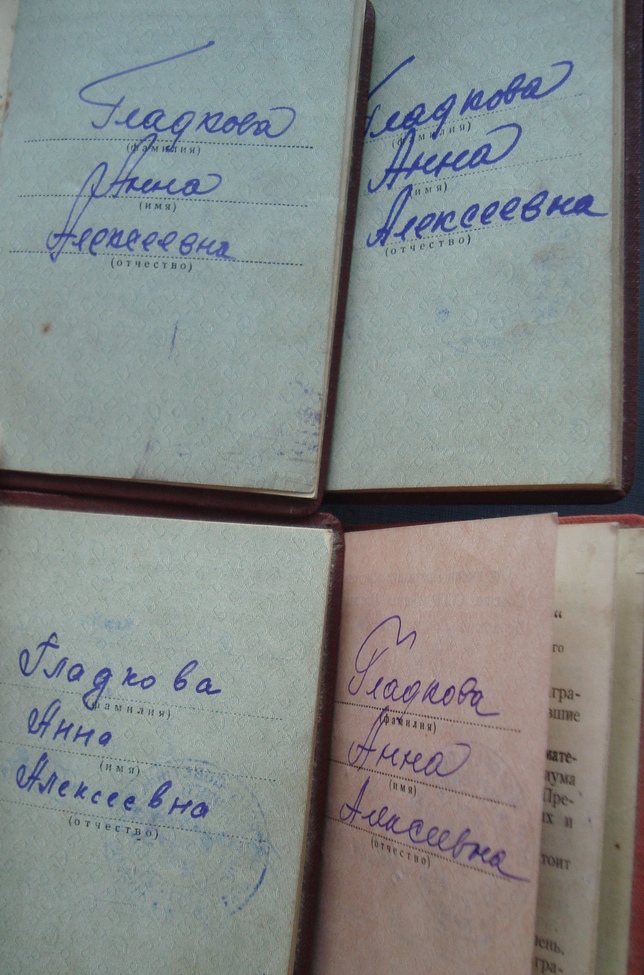 Гладкова
(фамилия)
Анна
(имя)
Алексеевна
(отчество)
Гладкова
(фамилия)
Анна
(имя)
Алексеевна
(отчество)
Гладкова
(фамилия)
Анна
(имя)
Алексеевна
(отчество)
Гладкова
(фамилия)
Анна
(имя)
Алексеевна
(отчество)
“
го
гра-
вшие
мате-
иума
Пре-
х и
тоит
ень.
гра-